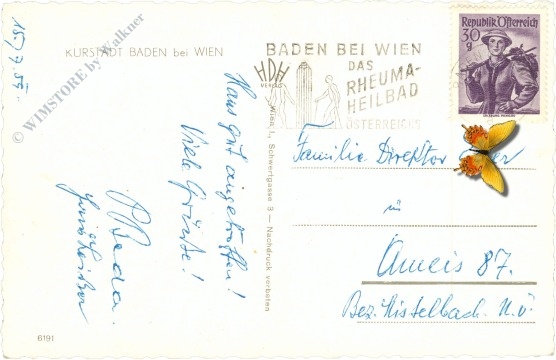 15/7.55.
KURSTADT BADEN bei WIEN
© WIMSTORE by Walkner
Haus gut angetroffen!
Viele Grüße!
P. Beda
HDH
VERLAG
Wien I., Schwertgasse 3 — Nachdruck verboten
BADEN BEI WIEN
DAS
RHEUMA-
HEILBAD
ÖSTERREICHS
Republik Österreich
30
g
Familie Direktor
in
Ameis 87.
Bez. Mistelbach N.Ö.
6191